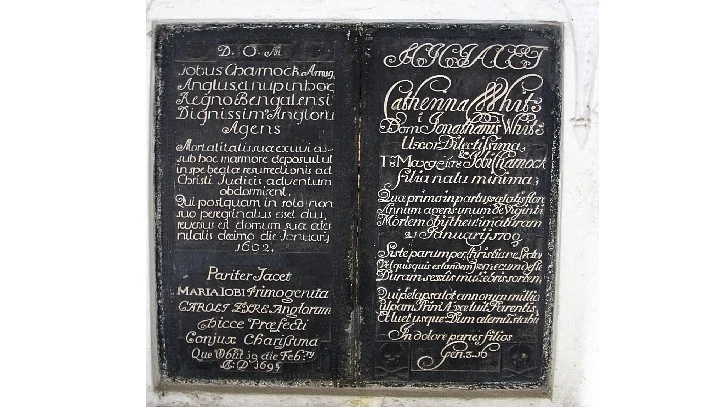 D. O. M
Jobus Charnock Armig
Anglus, & nup in hoc
Regno Bengalensi
Dignissim Angloru
Agens
Mortalitatis suæ exuvias
sub hoc marmore deposuit ut
in spe beatæ resurectionis ad
Christi Judicis adventum
obdormirent.
Qui postquam in solo non
suo peregrinatus esset diu,
reversus est domum suæ æter
nitatis decimo die January
1692.
Pariter Jacet
MARIA IOBI Primogenita
CAROLI EYRE Anglorum
hicce Præfecti
Conjux Charissima
Que Obiit 19 die Feb:ry
A: D 1696
HIC JACET
Catherina White
Domi Jonathanis White
Uxor Dilectissima,
Jobi Charnock
filia natu minima;
Qua prima in partu ætatis flore
Annum agens unum de Viginti
Mortem
21 January 1700
Siste parum per Christiane Lector
Vel quisquis es tandem mecum defle
Duram sexus muliebris sortem
Qui per annorum millia
culpam Parentis
Et luet usque Dum æternum stabit
In dolore paries filios
Gen. 3.16